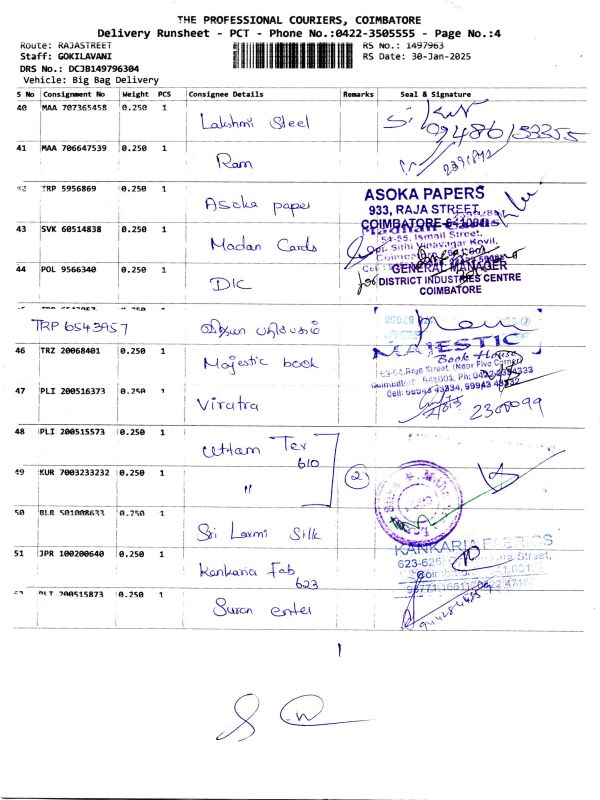 THE PROFESSIONAL COURIERS, COIMBATORE
Delivery Runsheet - PCT - Phone No.:0422-3505555 - Page No.:4
Route: RAJASTREET
RS No.: 1497963
Staff: GOKILAVANI
RS Date: 30-Jan-2025
DRS No.: DCJB149796304
Vehicle: Big Bag Delivery
S No Consignment No Weight PCS Consignee Details Remarks Seal & Signature
40 MAA 707365458 0.250 1 Lakshmi Steel
41 MAA 706647539 0.250 1 Ram
42 TRP 5956869 0.250 1 Asoka paper
ASOKA PAPERS
933, RAJA STREET,
COIMBATORE-641001
43 SVK 60514838 0.250 1 Madan Cards
54-55, Ismail Street,
Opp. Sithi Vinayagar Kovil,
44 POL 9566340 0.250 1 DIC
GENERAL MANAGER
DISTRICT INDUSTRIES CENTRE
COIMBATORE
TRP 6543957
46 TRZ 20068401 0.250 1 Majestic book
MAJESTIC
Book House
53-54, Raja Street, (Near Five Corner)
47 PLI 200516373 0.250 1 Viratra
2300099
48 PLI 200515573 0.250 1 Uttam Tex
610
49 KUR 7003233232 0.250 1 "
2
50 BLR 501008633 0.250 1 Sri Laxmi Silk
51 JPR 100200640 0.250 1 Kankaria Fab
623
KANKARIA FABRICS
52 PLI 200515873 0.250 1 Suran enter
1